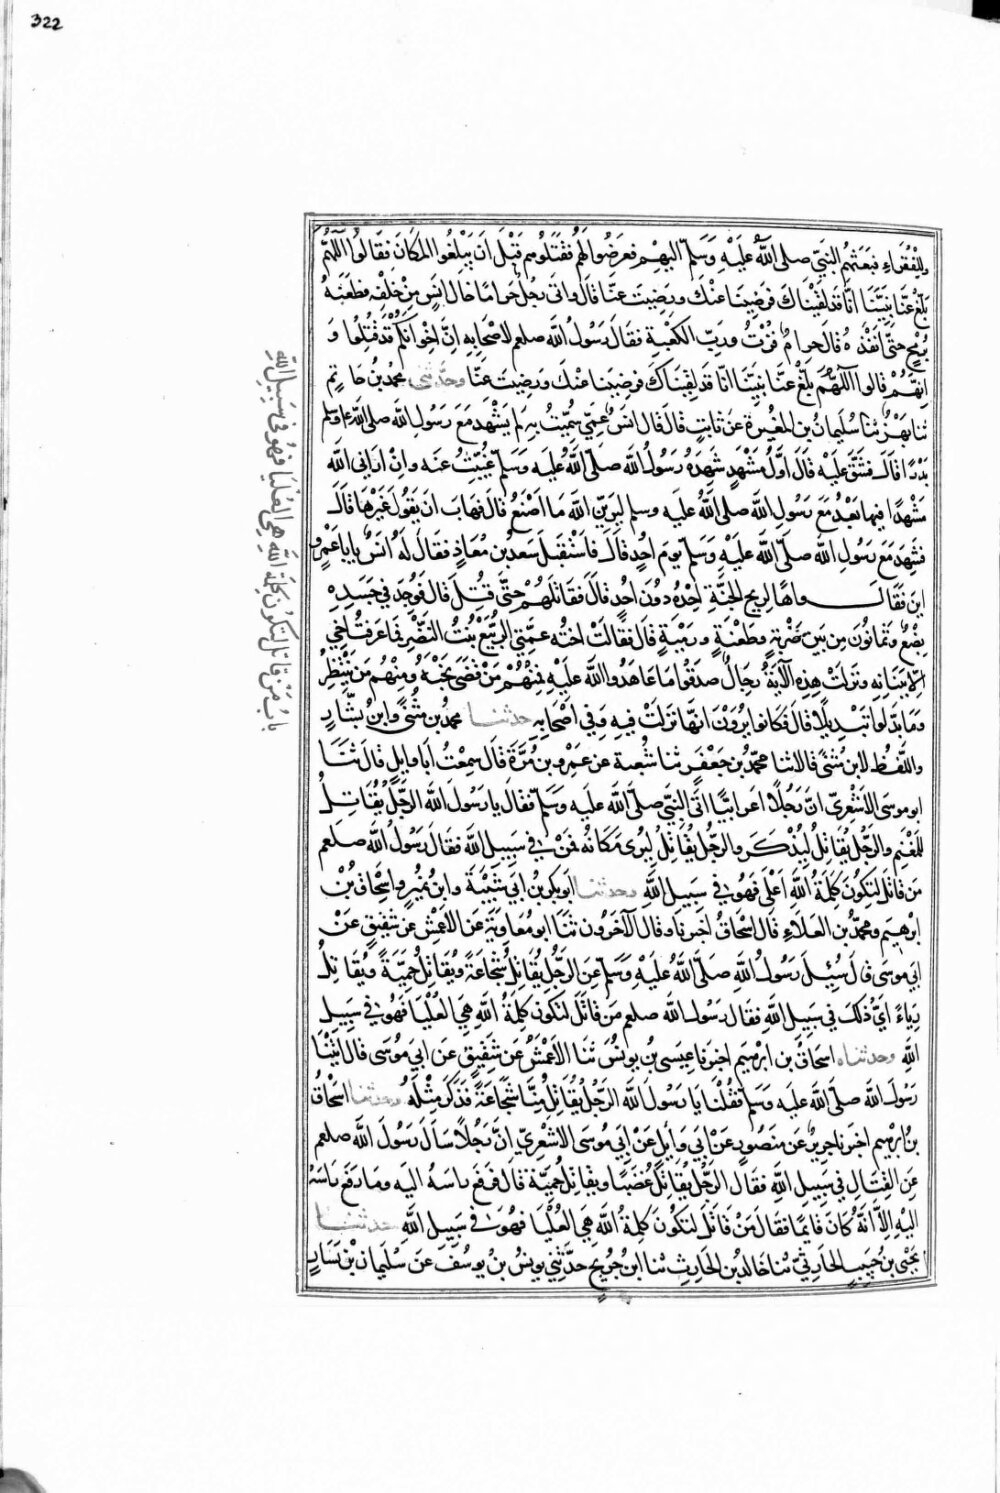 322
وللفقراء فبعثهم النبي صلى الله عليه وسلم اليهم فعرضوا لهم فقتلوهم قبل ان يبلغوا المكان فقالوا اللهم
بلغ عنا نبينا انا قد لقيناك فرضينا عنك ورضيت عنا قال واتى رجل حراما خال انس من خلفه فطعنه
برمح حتى انفذه قال حرام فزت ورب الكعبة فقال رسول الله صلعم لاصحابه ان اخوانكم قد قتلوا و
انهم قالوا اللهم بلغ عنا نبينا انا قد لقيناك فرضينا عنك ورضيت عنا وحدثني محمد بن حاتم
ثنا بهز ثنا سليمان بن المغيرة عن ثابت قال قال انس عمي سميت به لم يشهد مع رسول الله صلى الله ع وسلم
بدرا قال فشق عليه قال اول مشهد شهده رسول الله صلى الله عليه وسلم غيبت عنه وان اراني الله
مشهدا فيما بعد مع رسول الله صلى الله عليه وسلم ليرين الله ما اصنع قال فهاب ان يقول غيرها قال
فشهد مع رسول الله صلى الله عليه وسلم يوم احد قال فاستقبل سعد بن معاذ فقال له انس يابا عمرو
اين فقال واها لريح الجنة اجده دون احد قال فقاتلهم حتى قتل قال فوجد في جسده
بضع وثمانون من بين ضربة وطعنة ورمية قال فقالت اخته عمتي الربيع بنت النضر فما عرفت اخي
الا ببنانه ونزلت هذه الآية رجال صدقوا ما عاهدوا الله عليه فمنهم من قضى نحبه ومنهم من ينتظر
وما بدلوا تبديلا قال فكانوا يرون انها نزلت فيه وفي اصحابه حدثنا محمد بن مثنى وابن بشار
واللفظ لابن مثنى قالا ثنا محمد بن جعفر ثنا شعبة عن عمرو بن مرة قال سمعت ابا وايل قال ثنا
ابو موسى الاشعري ان رجلا اعرابيا اتى النبي صلى الله عليه وسلم فقال يا رسول الله الرجل يقاتل
للمغنم والرجل يقاتل ليذكر والرجل يقاتل ليرى مكانه فمن في سبيل الله فقال رسول الله صلعم
من قاتل لتكون كلمة الله اعلى فهو في سبيل الله وحدثنا ابو بكر بن ابي شيبة وابن نمير واسحاق بن
ابرهيم ومحمد بن العلاء قال اسحاق اخبرنا وقال الآخرون ثنا ابو معاوية عن الاعمش عن شقيق عن
ابي موسى قال سئل رسول الله صلى الله عليه وسلم عن الرجل يقاتل شجاعة ويقاتل حمية ويقاتل
رياء اي ذلك في سبيل الله فقال رسول الله صلعم من قاتل لتكون كلمة الله هي العليا فهو في سبيل
الله وحدثناه اسحاق بن ابرهيم اخبرنا عيسى بن يونس ثنا الاعمش عن شقيق عن ابي موسى قال اتينا
رسول الله صلى الله عليه وسلم فقلنا يا رسول الله الرجل يقاتل منا شجاعة فذكر مثله وحدثنا اسحاق
بن ابرهيم اخبرنا جرير عن منصور عن ابي وايل عن ابي موسى الاشعري ان رجلا سال رسول الله صلعم
عن القتال في سبيل الله فقال الرجل يقاتل غضبا ويقاتل حمية قال فرفع راسه اليه وما رفع راسه
اليه الا انه كان قايما فقال من قاتل لتكون كلمة الله هي العليا فهو في سبيل الله حدثنا
يحيى بن حبيب الحارثي ثنا خالد بن الحارث ثنا ابن جريج حدثني يونس بن يوسف عن سليمان بن يسار
باب من قاتل لتكون كلمة الله هي العليا فهو في سبيل الله